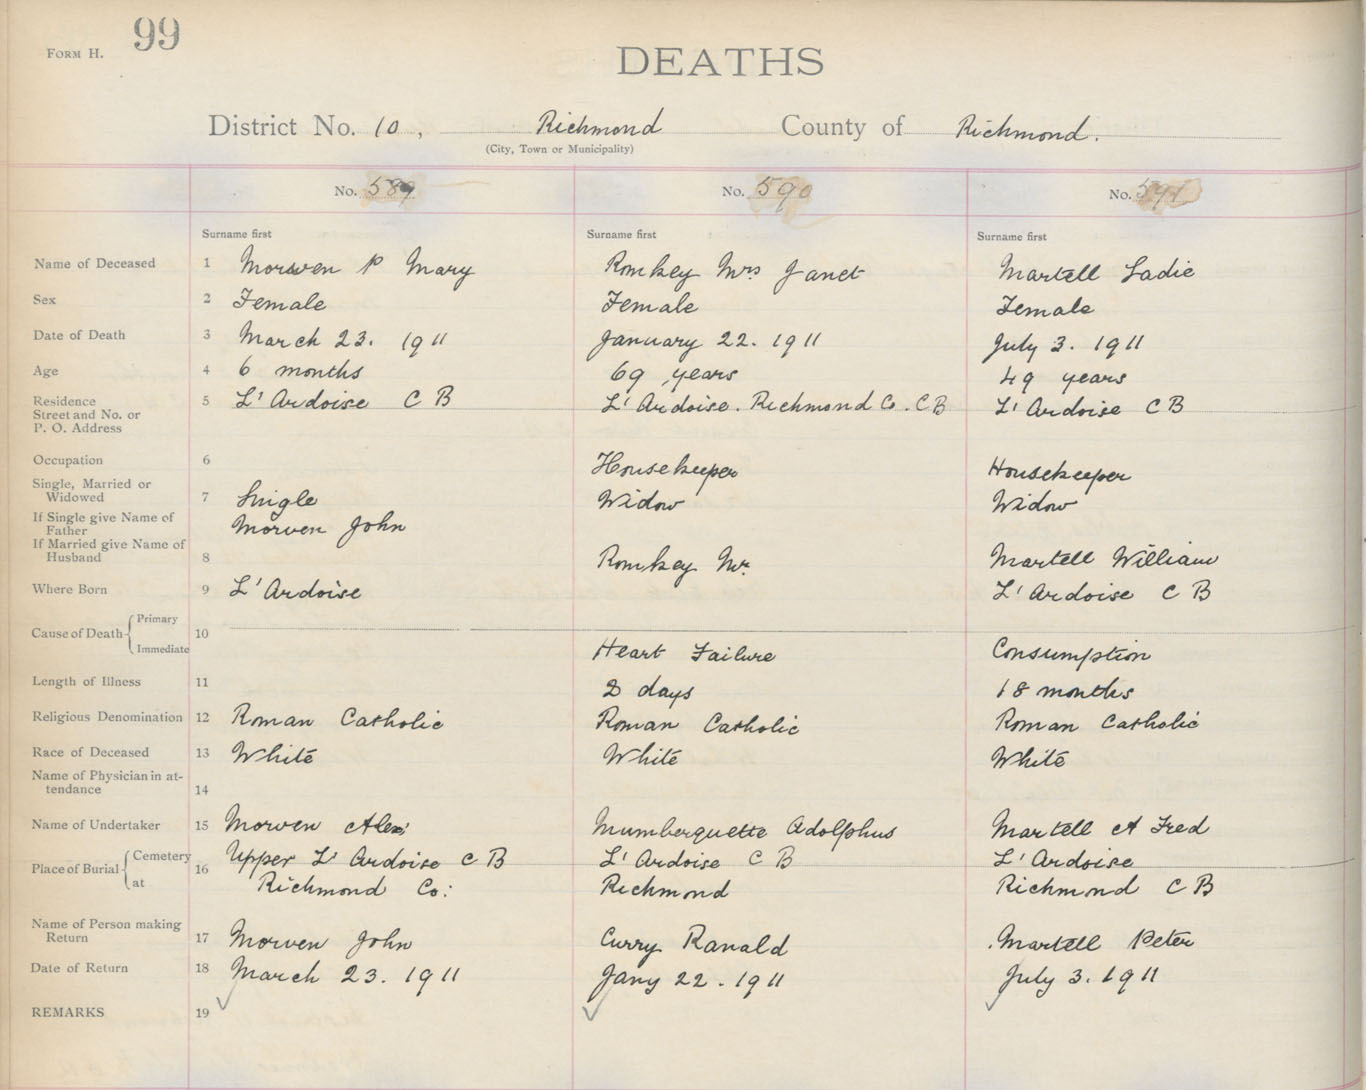 FORM H. 99
DEATHS
District No. 10, Richmond County of Richmond.
(City, Town or Municipality)
No. 589 No. 590 No. 591
Surname first Surname first Surname first
Name of Deceased 1 Morven P Mary Romkey Mrs Janet Martell Sadie
Sex 2 Female Female Female
Date of Death 3 March 23. 1911 January 22. 1911 July 3. 1911
Age 4 6 months 69 years 49 years
Residence 5 L'Ardoise C B L'Ardoise. Richmond Co. C B L'Ardoise C B
Street and No. or
P. O. Address
Occupation 6 Housekeeper Housekeeper
Single, Married or
Widowed 7 Single Widow Widow
If Single give Name of
Father Morven John
If Married give Name of
Husband 8 Romkey Mr. Martell William
Where Born 9 L'Ardoise L'Ardoise C B
Cause of Death Primary 10
Immediate Heart Failure Consumption
Length of Illness 11 2 days 18 months
Religious Denomination 12 Roman Catholic Roman Catholic Roman Catholic
Race of Deceased 13 White White White
Name of Physician in at-
tendance 14
Name of Undertaker 15 Morven Alex Mumberquette Adolphus Martell A Fred
Place of Burial Cemetery 16 Upper L'Ardoise C B L'Ardoise C B L'Ardoise
at Richmond Co: Richmond Richmond C B
Name of Person making
Return 17 Morven John Curry Ranald Martell Peter
Date of Return 18 March 23. 1911 Jany 22. 1911 July 3. 1911
REMARKS 19